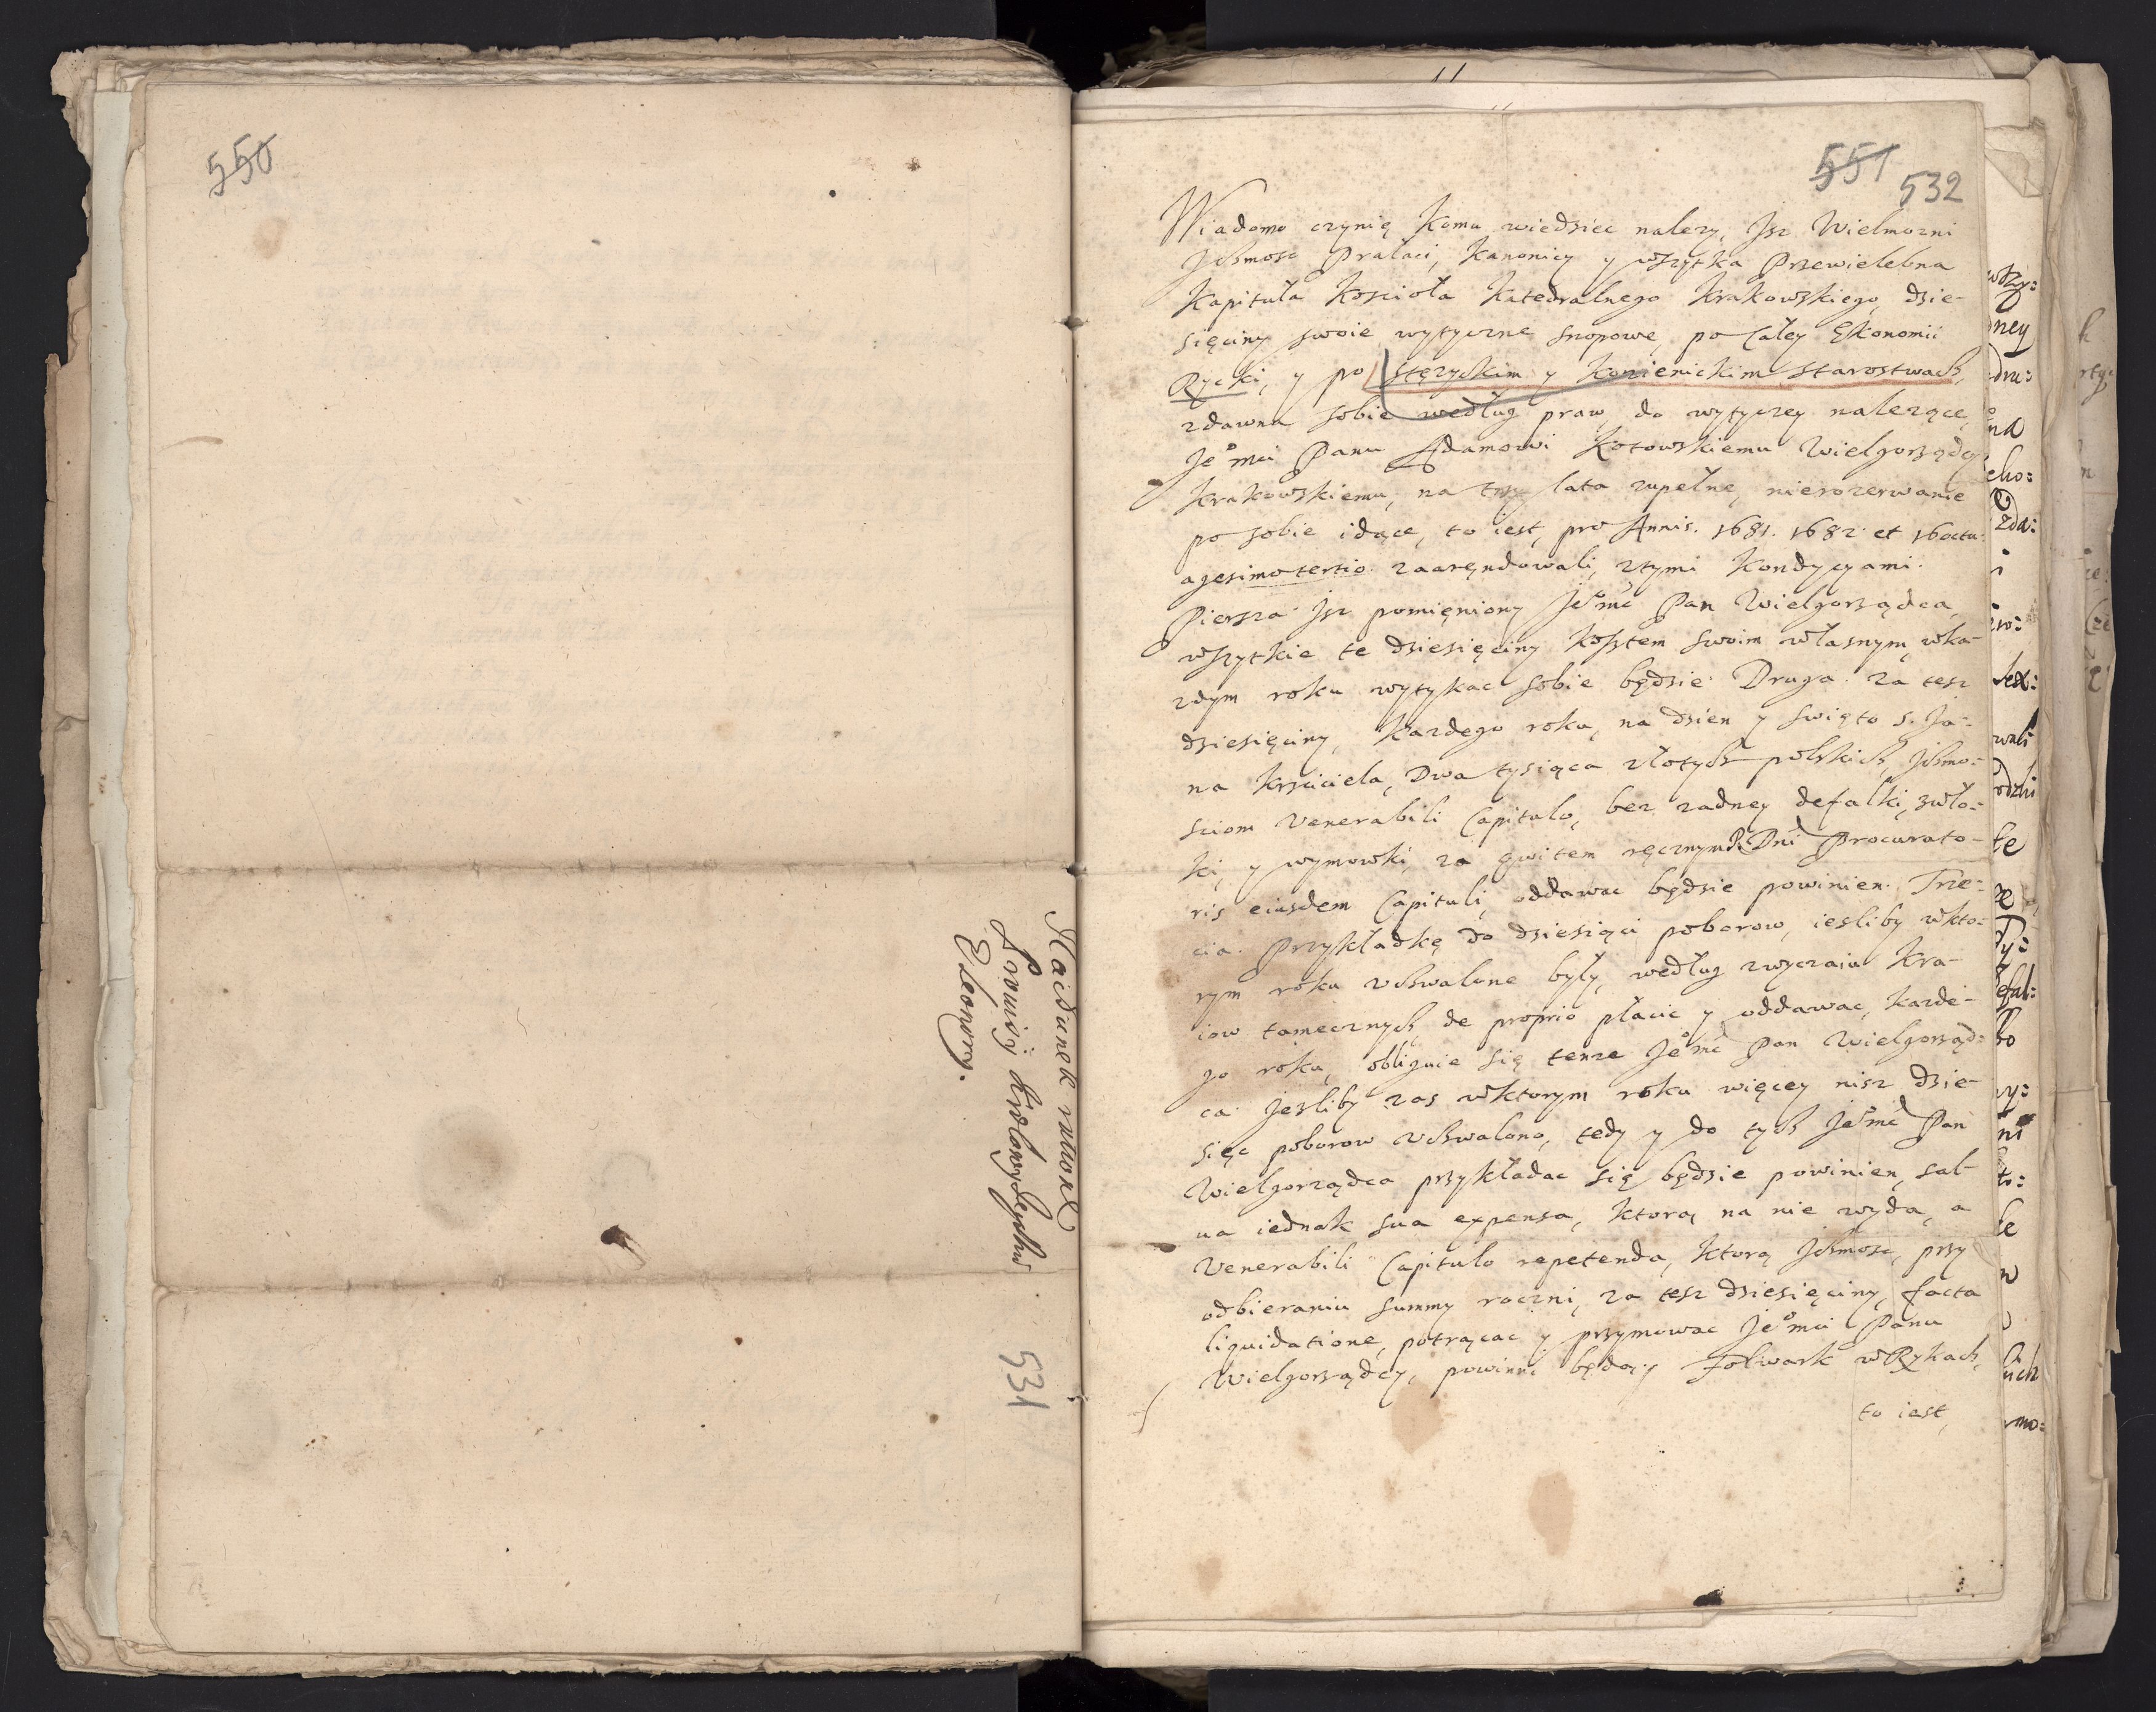 550
Raciunek ratione
Prowisÿ
Eleonory.
531
551
532
Wiadomo czynię komu wiedziec nalezy, Jsz Wielmozni
Jchmosc Prałaci, Kanonicy y wszytka Przewielebna
Kapituła Koscioła Katedralnego Krakowskiego, dzie-
sięciny swoie wytyczne snopowe, po całey Ekonomii
Rycki, y po Stęzyckim y Kozienickim Starostwach,
zdawna sobie według praw, do wytyczey nalezące,
Jeo mci Panu Adamowi Kotowskiemu Wielgorządcy
Krakowskiemu, na trzy lata zupełne, nierozerwanie
po sobie idące, to iest, pro Annis. 1681. 1682 et 16octu
agesimotertio zaaręndowali, ztymi Kondycyami.
Piersza Jsz pomięniony Jeo mc Pan Wielgorządca,
wszytkie te dziesięciny kosztem swoim własnym, wka-
zdym roku wytykac sobie będzie. Druga. za tesz
dziesięciny, kazdego roku, na dzien y swięto s. Ja-
na Krzciciela, Dwa tysiąca złotych polskich, Jchmo-
sciom Venerabili Capitulo, bez zadney defalki, zwło-
ki, y wymowki, za qwitem ręcznym Dni Procurato-
ris eiusdem Capituli, oddawac będzie powinien. Trze-
cia. Przykładkę do dziesiąci poborow, iesliby wkto-
rym roku vchwalone były, według zwyczaiu Kra-
iow tamecznych de proprio płacic y oddawac, kazde-
go roku, obliguie się tenze Jeo mc Pan Wielgorząd-
ca. Jezliby zas wktorym roku więcey nisz dzie-
sięc poborow vchwalono, tedy y do tych Jeo mc Pan
Wielgorządca przykładac się będzie powinien, sal-
ua iednak sua expensa, ktorą na nie wyda, a
Venerabili Capitulo repetenda, ktorą Jchmosc, przy
odbieraniu summy roczni, za tesz dziesięciny, facta
liquidatione, potrącac y przymowac Jeo mci Panu
Wielgorządcy, powinni będą. y folwark w Rykach,
to iest,